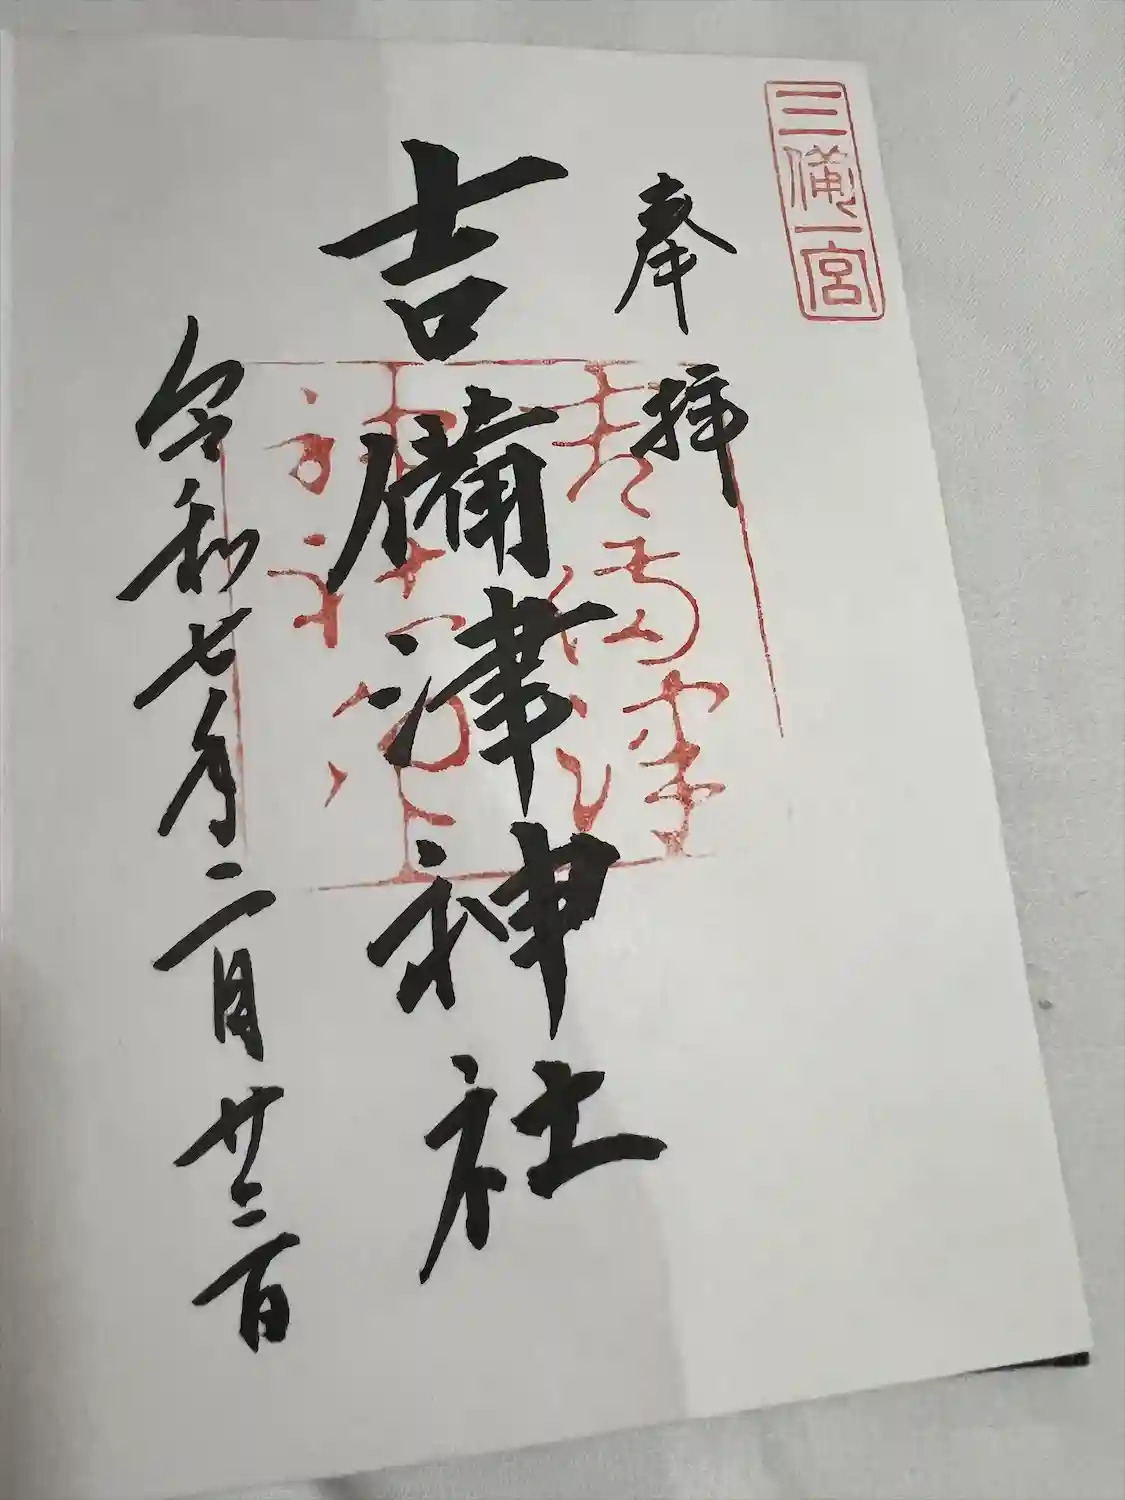 三備一宮
奉拝
吉備津神社
吉備津
令和七年二月廿三日